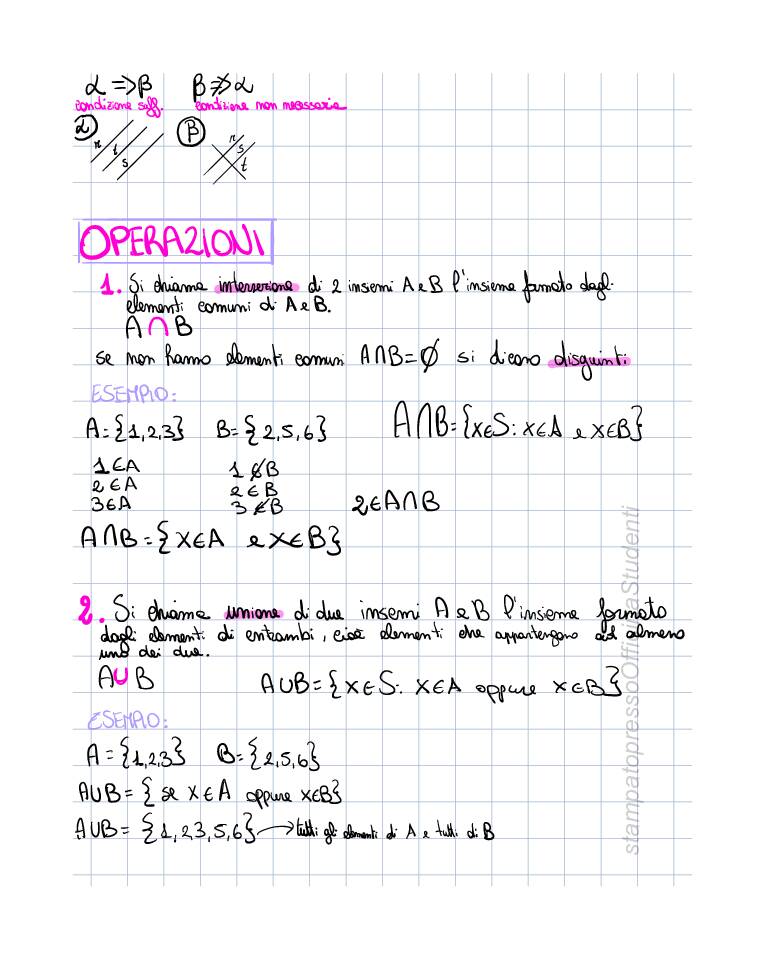 α ⇒ β β ⇏ α
condizione suff. condizione non necessaria
α β
r t s
r s t
OPERAZIONI
1. Si chiama intersezione di 2 insiemi A e B l'insieme formato dagli
elementi comuni di A e B.
A ∩ B
se non hanno elementi comuni A∩B=∅ si dicono disgiunti
ESEMPIO:
A={1,2,3} B={2,5,6} A∩B={x∈S: x∈A e x∈B}
1∈A 1∉B
2∈A 2∈B
3∈A 3∉B 2∈A∩B
A∩B={x∈A e x∈B}
2. Si chiama unione di due insiemi A e B l'insieme formato
dagli elementi di entrambi, cioè elementi che appartengono ad almeno
uno dei due.
A∪B A∪B={x∈S: x∈A oppure x∈B}
ESEMPIO:
A={1,2,3} B={2,5,6}
A∪B={se x∈A oppure x∈B}
A∪B={1,2,3,5,6} → tutti gli elementi di A e tutti di B
stampatopressoOfficinaStudenti